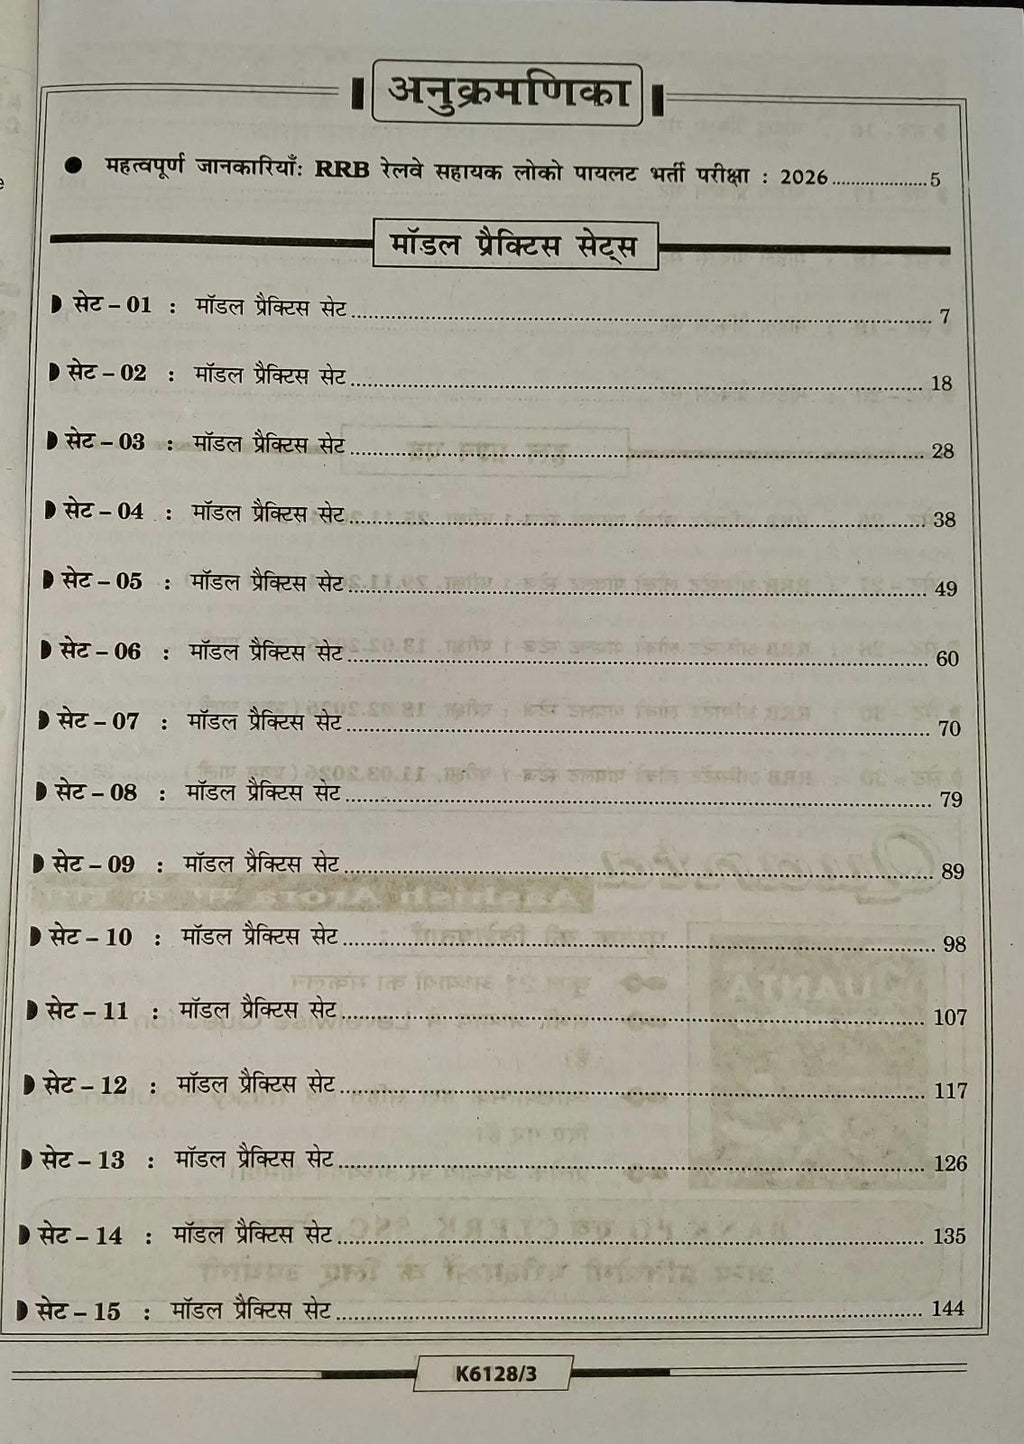 अनुक्रमणिका
● महत्वपूर्ण जानकारियाँ: RRB रेलवे सहायक लोको पायलट भर्ती परीक्षा : 2026 ..................... 5
मॉडल प्रैक्टिस सेट्स
सेट – 01 : मॉडल प्रैक्टिस सेट ..................... 7
सेट – 02 : मॉडल प्रैक्टिस सेट ..................... 18
सेट – 03 : मॉडल प्रैक्टिस सेट ..................... 28
सेट – 04 : मॉडल प्रैक्टिस सेट ..................... 38
सेट – 05 : मॉडल प्रैक्टिस सेट ..................... 49
सेट – 06 : मॉडल प्रैक्टिस सेट ..................... 60
सेट – 07 : मॉडल प्रैक्टिस सेट ..................... 70
सेट – 08 : मॉडल प्रैक्टिस सेट ..................... 79
सेट – 09 : मॉडल प्रैक्टिस सेट ..................... 89
सेट – 10 : मॉडल प्रैक्टिस सेट ..................... 98
सेट – 11 : मॉडल प्रैक्टिस सेट ..................... 107
सेट – 12 : मॉडल प्रैक्टिस सेट ..................... 117
सेट – 13 : मॉडल प्रैक्टिस सेट ..................... 126
सेट – 14 : मॉडल प्रैक्टिस सेट ..................... 135
सेट – 15 : मॉडल प्रैक्टिस सेट ..................... 144
K6128/3